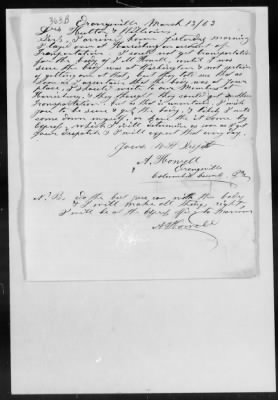 363B
Orangeville March 13/63
Drs Hutton & Williams
Sirs, I arrived home yesterday morning
I layed over at Harrisburg on account of
Transportation. I could not get transportation
for the body of Till Howell, until I was
sure the body was at Washington & was certain
of getting one at that, but they told me that as
soon as I ascertain that the body was at your
place, I should write to our Members at
Harrisburg, & they thought they could get another
Transportation. but as that is uncertain, I wish
you to be sure & get the body, & likely I will
come down myself, or have the it come by
Express, which I will determine as soon as I get
your Despatch & I will expect that every day.
Yours With Respt
A. Howell
Orangeville
Columbia County Pa
N.B. Do the best you can with the body
& I will make all things right,
I will be at the Express office to answer
A Howell